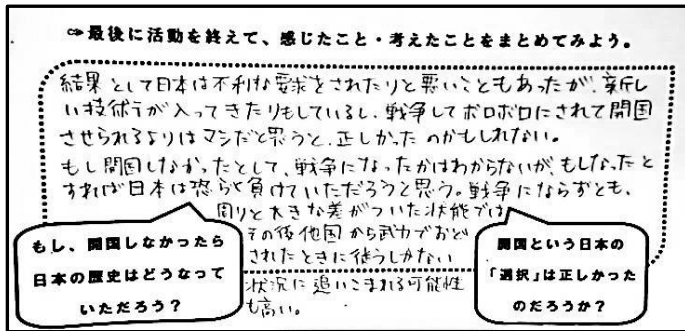 ☞最後に活動を終えて、感じたこと・考えたことをまとめてみよう。
結果として日本は不利な要求をされたりと悪いこともあったが、新し
い技術が入ってきたりもしているし、戦争してボロボロにされて開国
させられるよりはマシだと思うと、正しかったのかもしれない。
もし開国しなかったとして、戦争になったかはわからないが、もしなったと
すれば日本は恐らく負けていただろうと思う。戦争にならずとも、
周りと大きな差がついた状態では
その後他国から武力でおど
されたときに従うしかない
状況に追いこまれる可能性
も高い。
もし、開国しなかったら
日本の歴史はどうなって
いただろう?
開国という日本の
「選択」は正しかった
のだろうか?